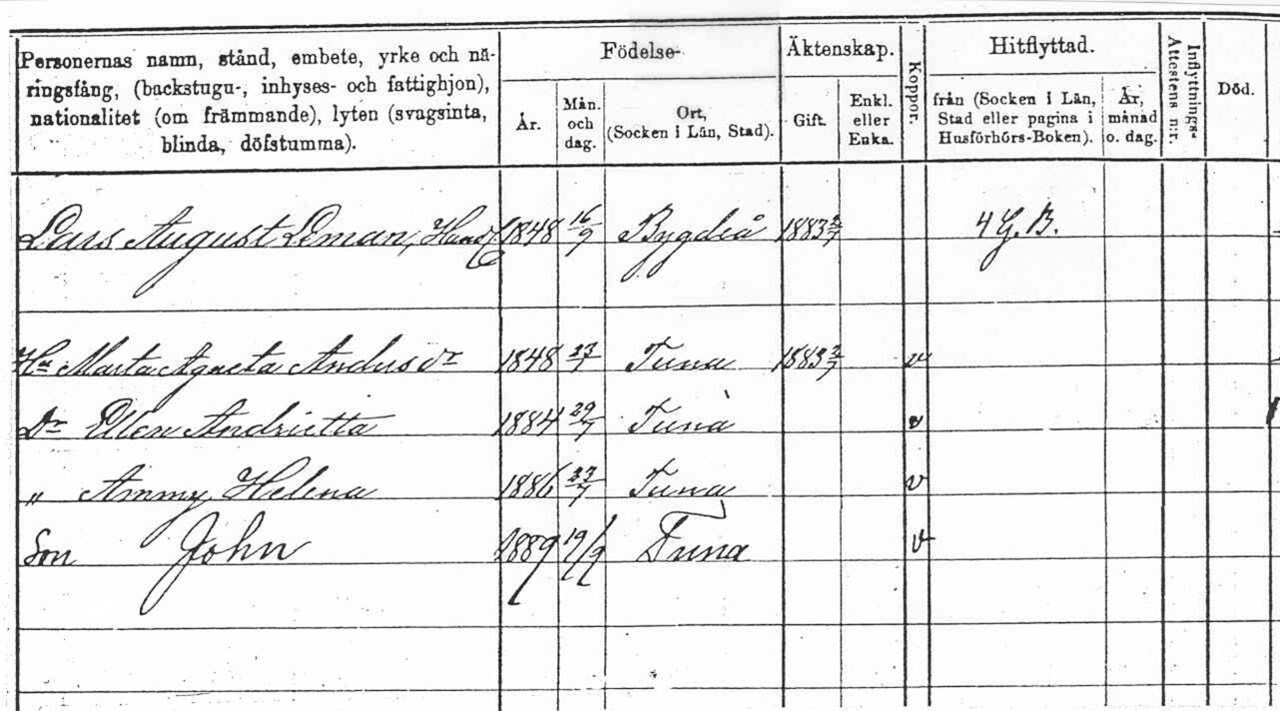 Personernas namn, stånd, embete, yrke och nä-
ringsfång, (backstugu-, inhyses- och fattighjon),
nationalitet (om främmande), lyten (svagsinta,
blinda, döfstumma).
Födelse-
År.
Mån.
och
dag.
Ort,
(Socken i Län, Stad).
Äktenskap.
Gift.
Enkl.
eller
Enka.
Koppor.
Hitflyttad.
från (Socken i Län,
Stad eller pagina i
Husförhörs-Boken).
År,
månad
o. dag.
Inflyttnings-
Attestens n:r.
Död.
Lars August Deman, 1848 16/9 Bygdeå 1883 4 G. B.
Hu Marta Agneta Andersdr 1848 Tuna 1883 v
Dr Ellen Andrietta 1884 29/7 Tuna v
„ Ammy Helena 1886 Tuna v
Son John 1889 19/9 Tuna v